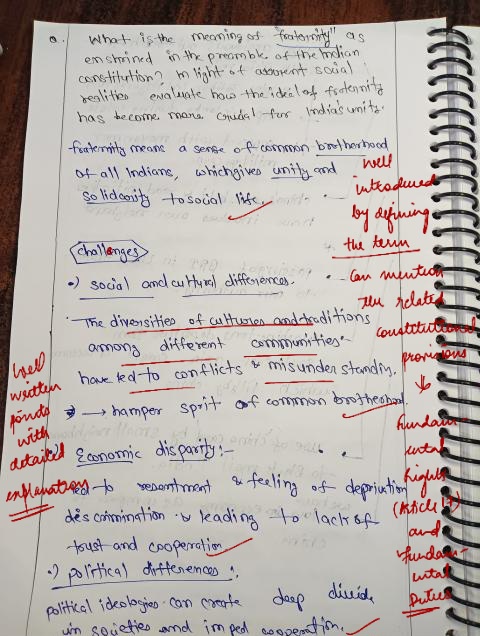 Q. What is the meaning of "fraternity" as
enshrined in the preamble of the Indian
constitution? In light of current social
realities evaluate how the ideal of fraternity
has become more crucial for India's unity.
fraternity means a sense of common brotherhood
of all Indians, which gives unity and
solidarity to social life.
Well
introduced
by defining
the term
challenges
•) social and cultural differences.
· The diversities of cultures and traditions
among different communities
have led to conflicts & misunderstandin.
→ hamper sprit of common brotherhood
Can mention
the related
constitutional
provisions
↓
fundam-
ental
rights
(Article 17)
and
fundam-
ental
Duties
Well
written
points
with
detailed
explanation
Economic disparity:-
led to resentment & feeling of depriution
discrimination & leading to lack of
trust and cooperation
•) political differences:
political ideologies can create deep divide
in societies and imped cooperation.